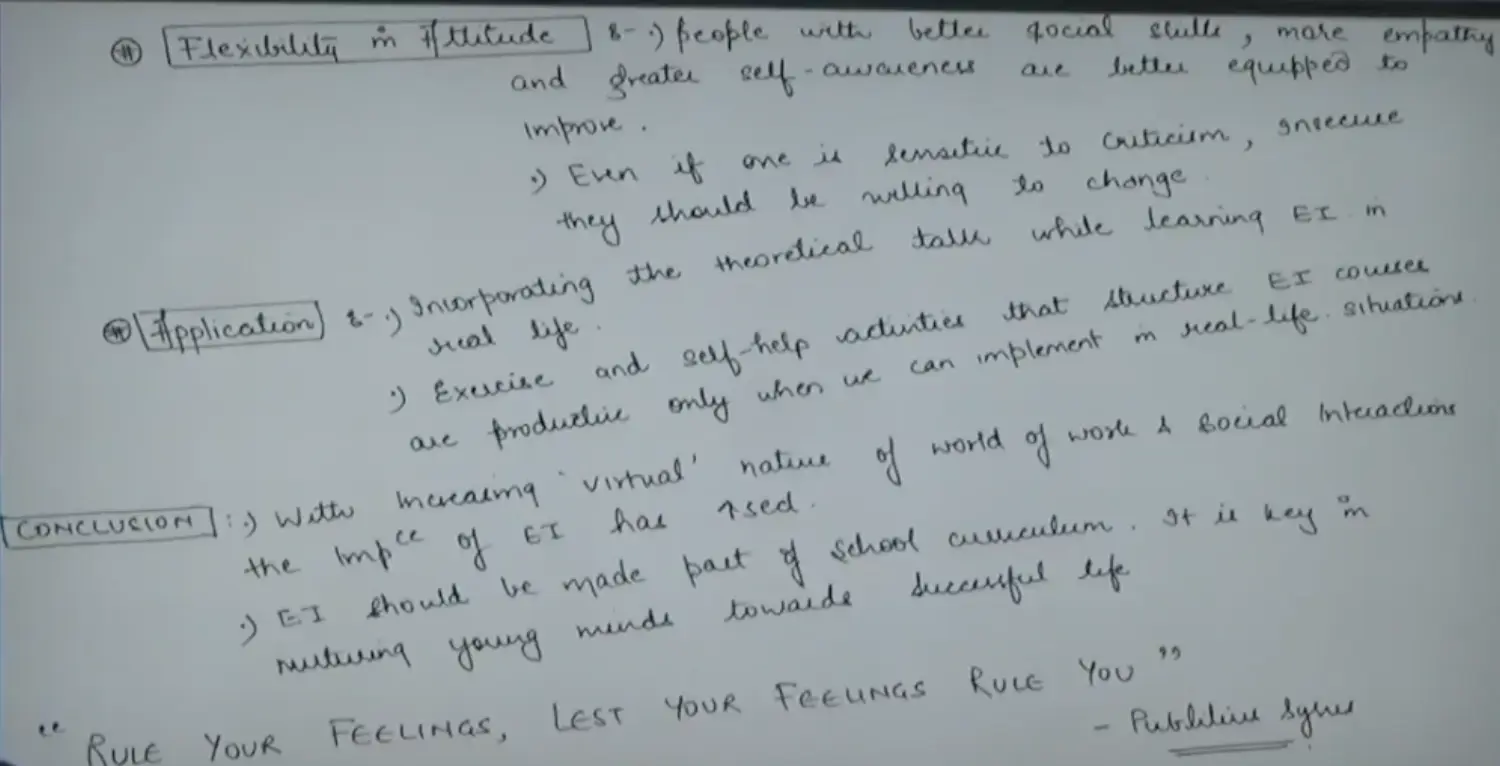 # Flexibility in Attitude :- •) people with better social skills, more empathy
and greater self-awareness are better equipped to
improve.
•) Even if one is sensitive to criticism, insecure
they should be willing to change.
# Application :- •) Incorporating the theoretical talk while learning EI in
real life.
•) Exercise and self-help activities that structure EI courses
are productive only when we can implement in real-life situations.
CONCLUSION :•) With increasing 'virtual' nature of world of work & social interactions
the Impce of EI has ↑sed.
•) EI should be made part of school curriculum. It is key in
nurturing young minds towards successful life
"RULE YOUR FEELINGS, LEST YOUR FEELINGS RULE YOU"
- Publilius Syrus